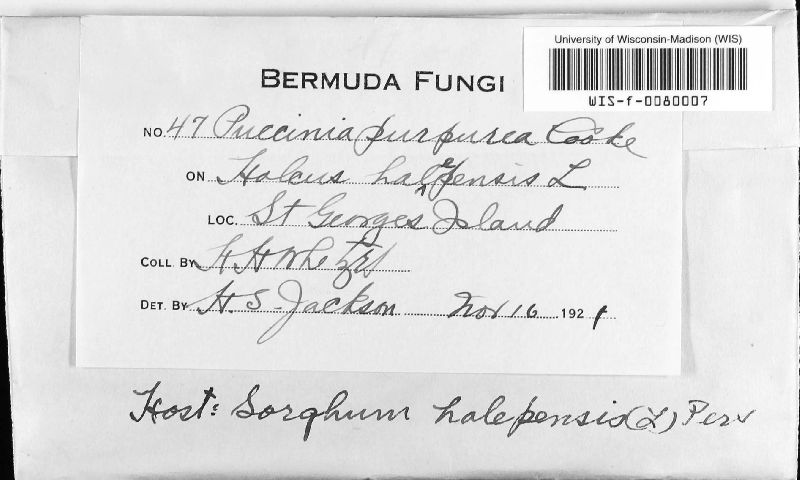 University of Wisconsin-Madison (WIS)
WIS-f-0080007
BERMUDA FUNGI
NO. 47 Puccinia purpurea Cooke
ON Holcus halepensis L
LOC. St Georges Island
COLL. BY H H Whetzel
DET. BY H. S. Jackson Nov 16 1921
Host: Sorghum halepensis (L) Pers